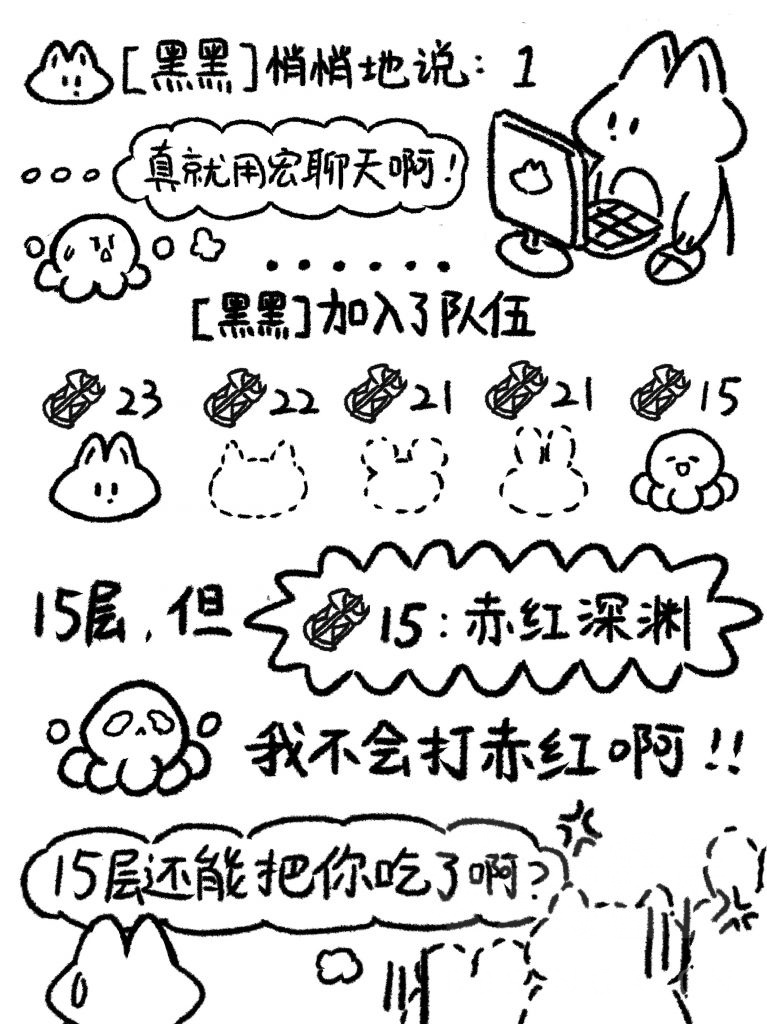 [黑黑]悄悄地说：1
真就用宏聊天啊！
[黑黑]加入了队伍
23 22 21 21 15
15层，但
15：赤红深渊
我不会打赤红啊！！
15层还能把你吃了啊？